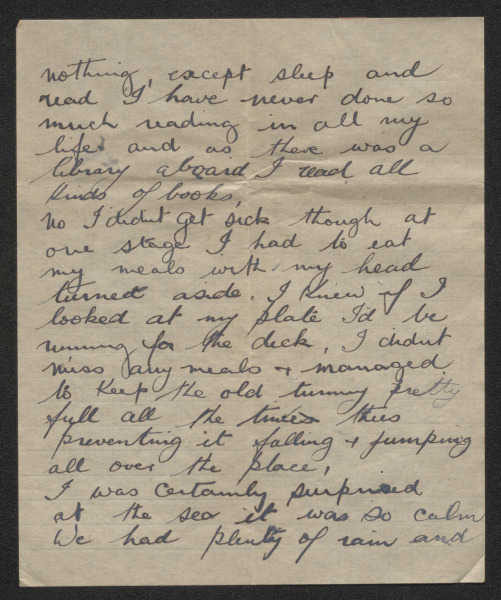 nothing, except sleep and
read I have never done so
much reading in all my
life and as there was a
library aboard I read all
kinds of books,
No I didnt get sick though at
one stage I had to eat
my meals with my head
turned aside. I knew if I
looked at my plate I'd be
running for the deck, I didnt
miss any meals + managed
to keep the old tummy pretty
full all the times thus
preventing it falling + jumping
all over the place,
I was certainly surprised
at the sea it was so calm
We had plenty of rain and